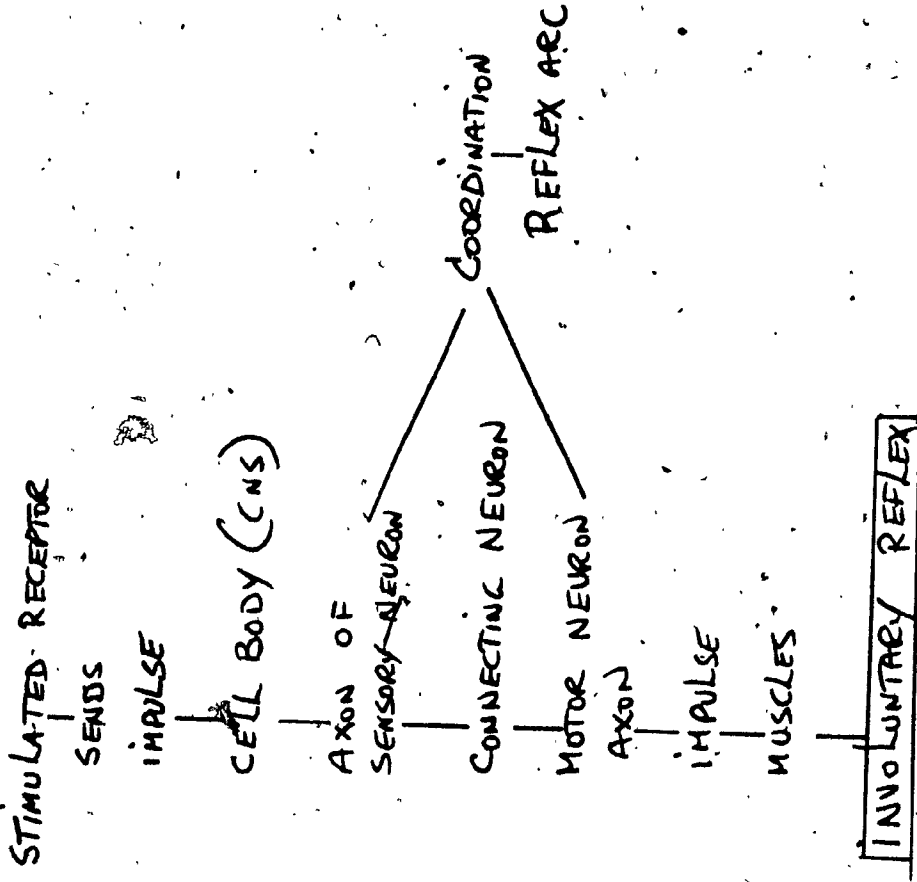 STIMULATED RECEPTOR
SENDS
IMPULSE
CELL BODY (CNS)
AXON OF
SENSORY NEURON
CONNECTING NEURON
MOTOR NEURON
AXON
IMPULSE
MUSCLES
INVOLUNTARY REFLEX
COORDINATION
REFLEX ARC